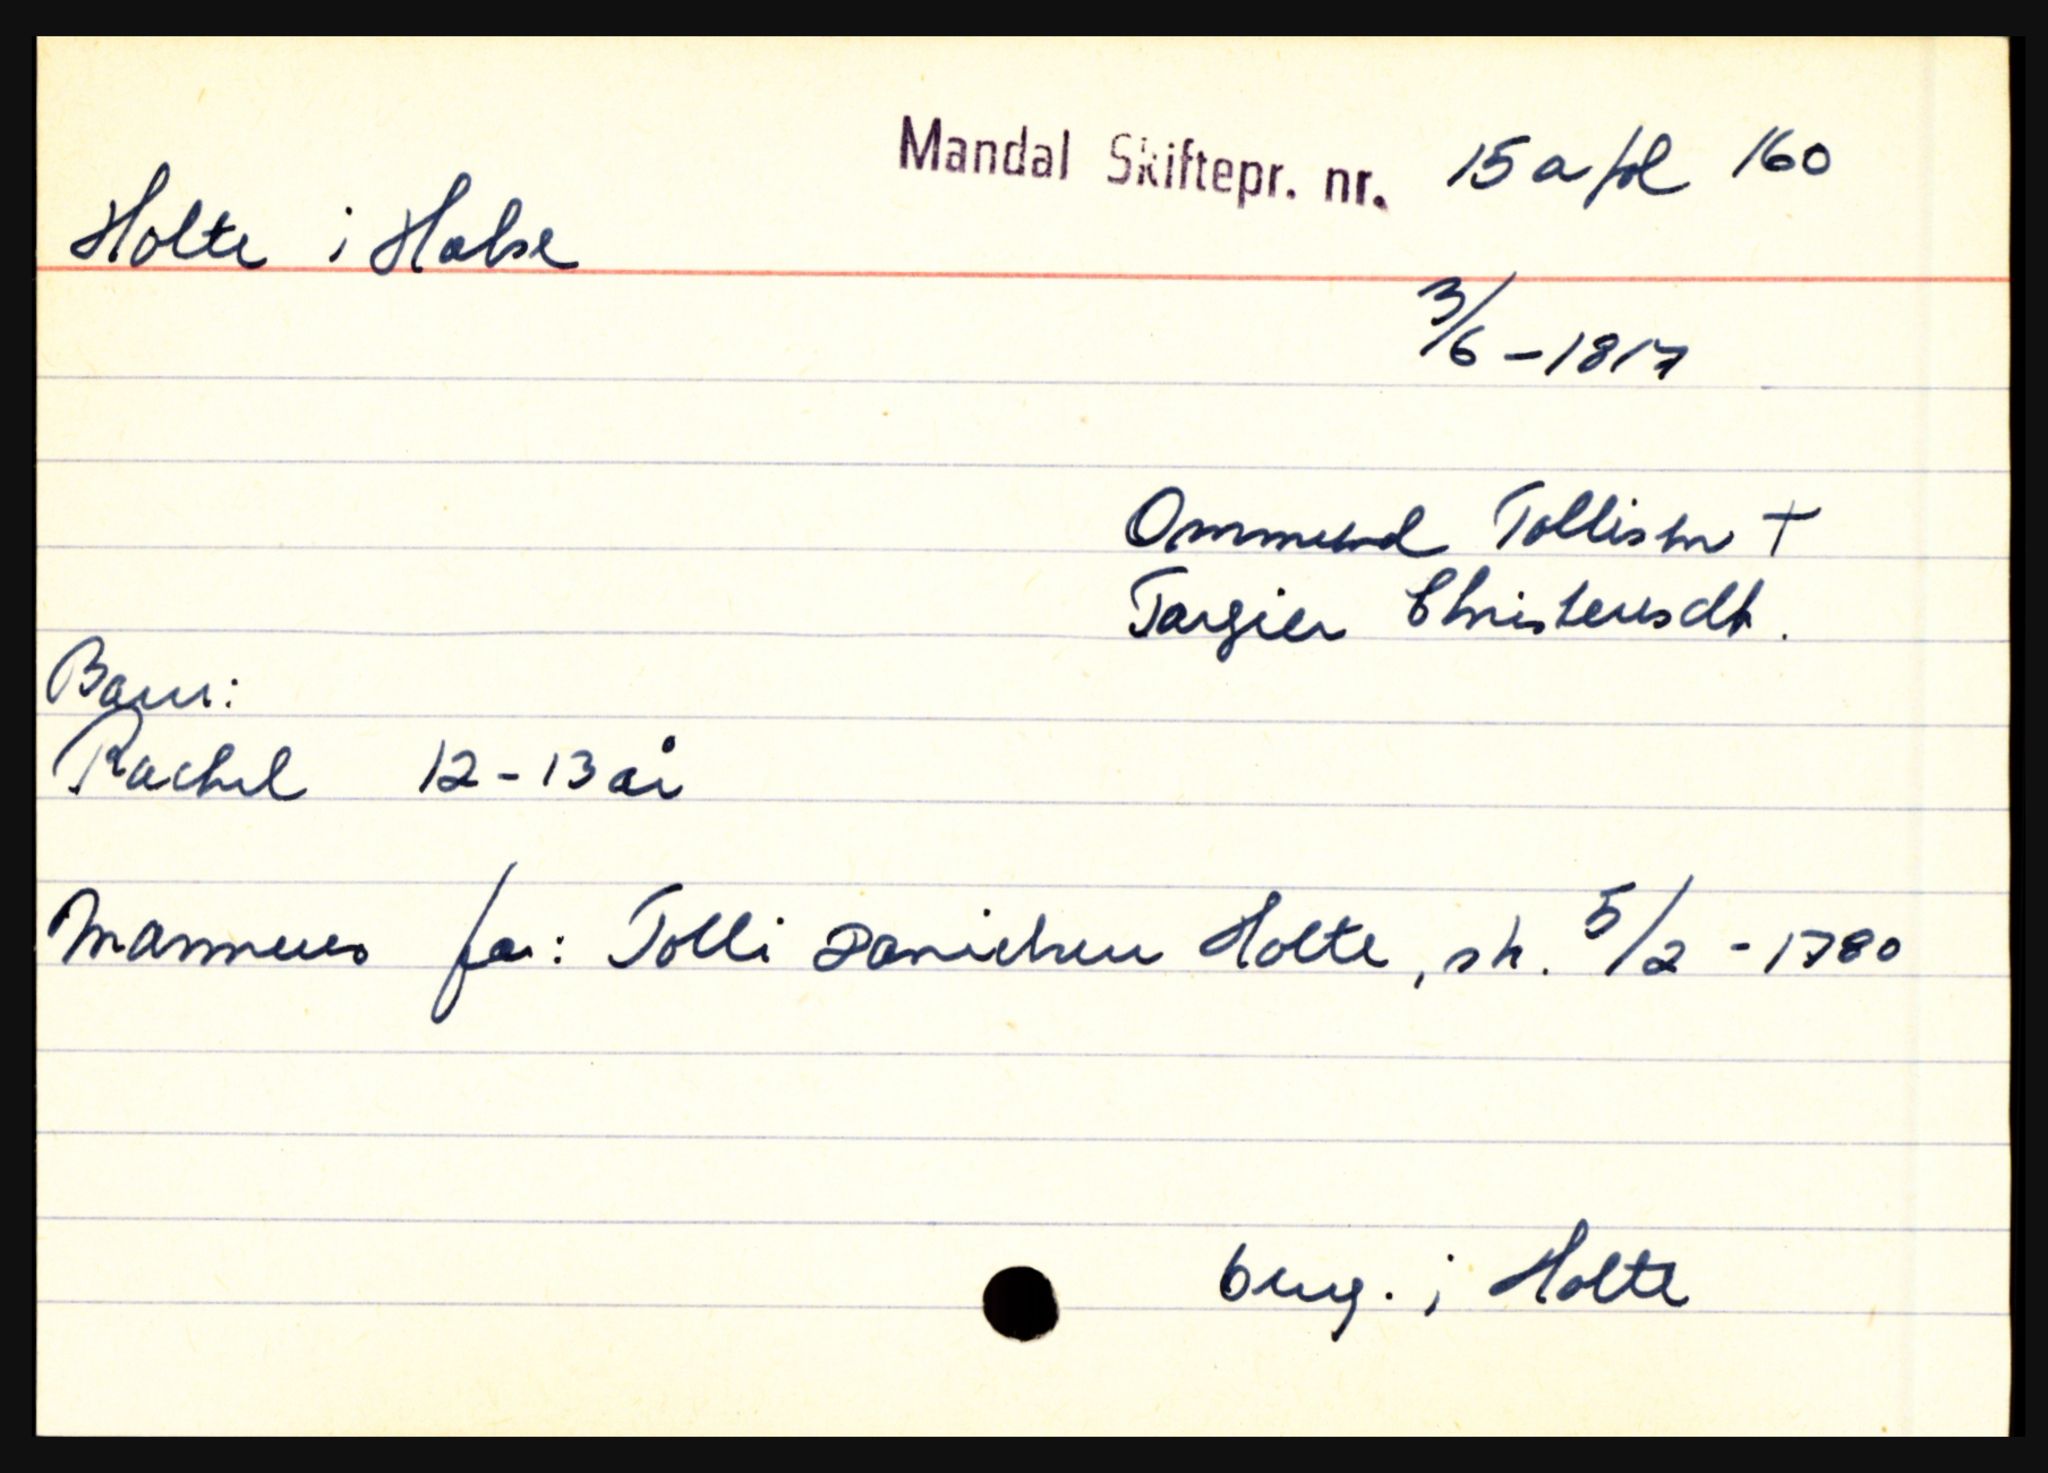 Mandal Skiftepr. nr. 15a fol 160
Holte i Halse
3/6-1817
Ommund Tollisen +
Targier Christensdt.
Barn:
Rachel 12-13 år
Mannens far: Tolli Danielsen Holte, sk. 5/2-1780
brug. i Holte